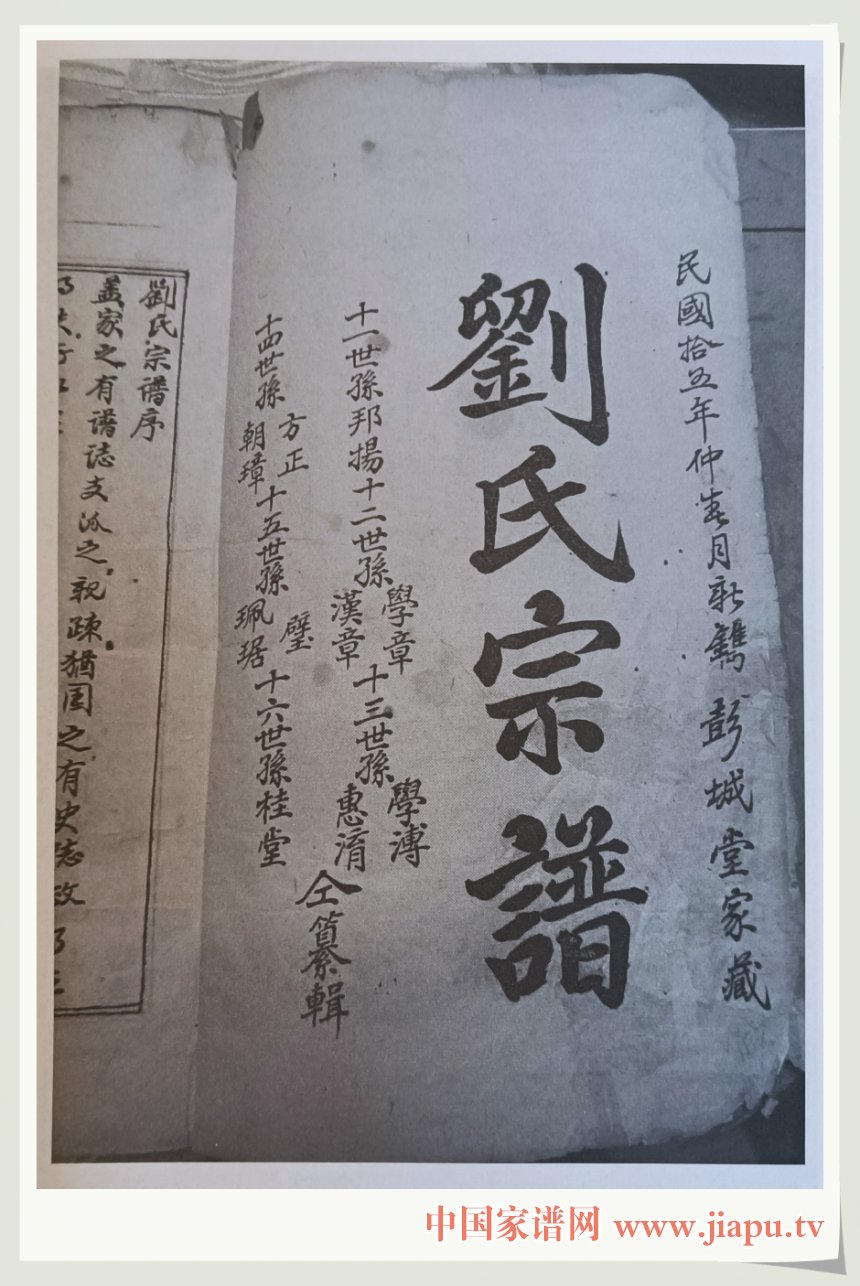 民國拾五年仲春月新鐫 彭城堂家藏
劉氏宗譜
十一世孫邦揚十二世孫學章漢章十三世孫學溥惠淯
十四世孫方正朝璋十五世孫璧珮琚十六世孫桂堂
仝纂輯
劉氏宗谱序
盖家之有譜誌支派之親疎猶国之有史誌政
中国家谱网 www.jiapu.tv